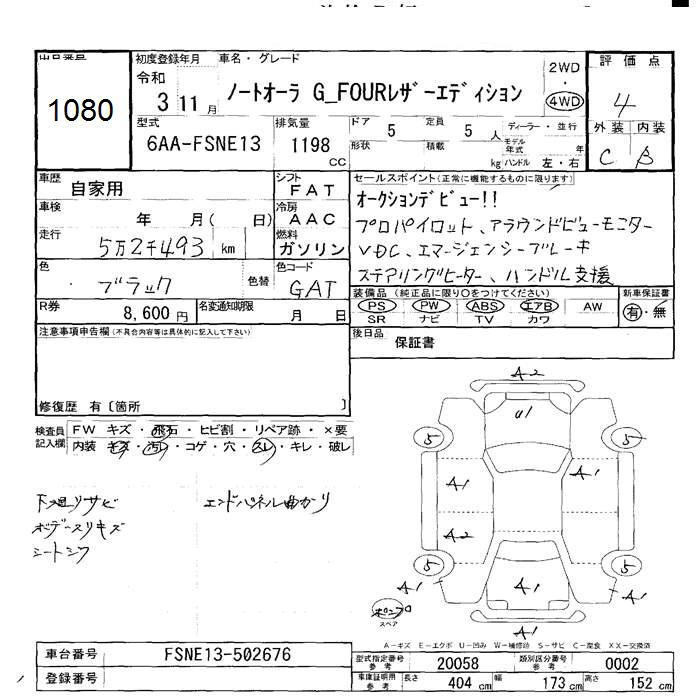 出品番号 初度登録年月 車名・グレード 評価点
1080
令和
3 11 月
ノートオーラ G_FOURレザーエディション
2WD
・
4WD
4
型式 排気量 ドア 定員
6AA-FSNE13 1198 CC
5 5 人
ディーラー・並行
形状 積載 kg
モデル年式 年
ハンドル 左・右
外装 内装
C B
車歴 自家用
シフト FAT
車検 年 月( 日)
冷房 AAC
走行 5万2千493 km
燃料 ガソリン
色 ブラック 色替
色コード GAT
R券 8,600 円
名変通知期限 月 日
セールスポイント(正常に機能するものに限ります)
オークションデビュー!!
プロパイロット、アラウンドビューモニター
VDC、エマージェンシーブレーキ
ステアリングヒーター、ハンドル支援
装備品 (純正品に限り○をつけてください) 新車保証書
PS PW ABS エアB AW 有・無
SR ナビ TV カワ
後日品 保証書
注意事項申告欄(不具合内容等は具体的に記入して下さい)
修復歴 有〔箇所 〕
検査員記入欄
FW キズ・飛石・ヒビ割・リペア跡・×要
内装 キズ・汚れ・コゲ・穴・スレ・キレ・破レ
下廻りサビ エンドパネル曲がり
ボデースリキズ
シートシワ
A2
U1
5 5
A1 A1
A2
5 5
A1 A1 A1
スペア
A1
A-キズ E-エクボ U-凹み W-補修跡 S-サビ C-腐食 XX-交換済
車台番号 FSNE13-502676
登録番号
型式指定番号 参考 20058 類別区分番号 参考 0002
車庫証明用 参考 長さ 404 cm 幅 173 cm 高さ 152 cm